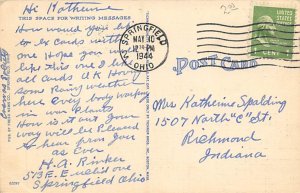 Hi Katherine
THIS SPACE FOR WRITING MESSAGES
How would you like
to ex Cards with
one Hope you
like this one I like
all cards A K Having
some Rainy weather
here Every body working
in war plants
How is it out your
way will be pleased
to hear from you
as Ever
H. A. Rinker
573 E.
Springfield Ohio
SPRINGFIELD
MAY 30
12 PM
1944
OHIO
1 CENT
POST CARD
Mrs Katherine Spalding
1507 North "C" St.
Richmond
Indiana